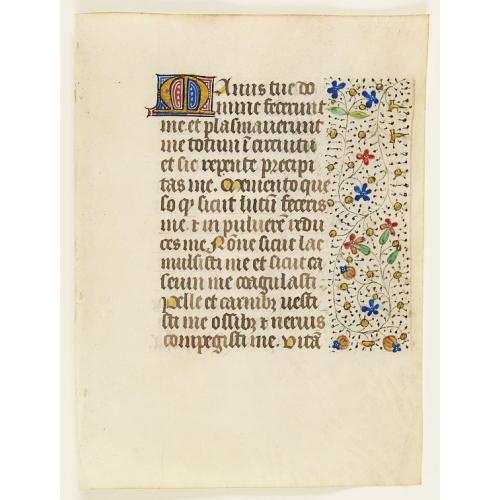 Manus tue do
mine fecerunt
me et plasmauerunt
me totum ī circuitu
et sic repente precipi
tas me. Memento que
so qꝫ sicut lutū feceris
me ⁊ in puluerē redu
ces me. Nōne sicut lac
mulsisti me et sicut ca
seum me coagulasti.
Pelle et carnibꝫ uesti
sti me ossibꝫ ⁊ neruis
compegisti me. Vitā